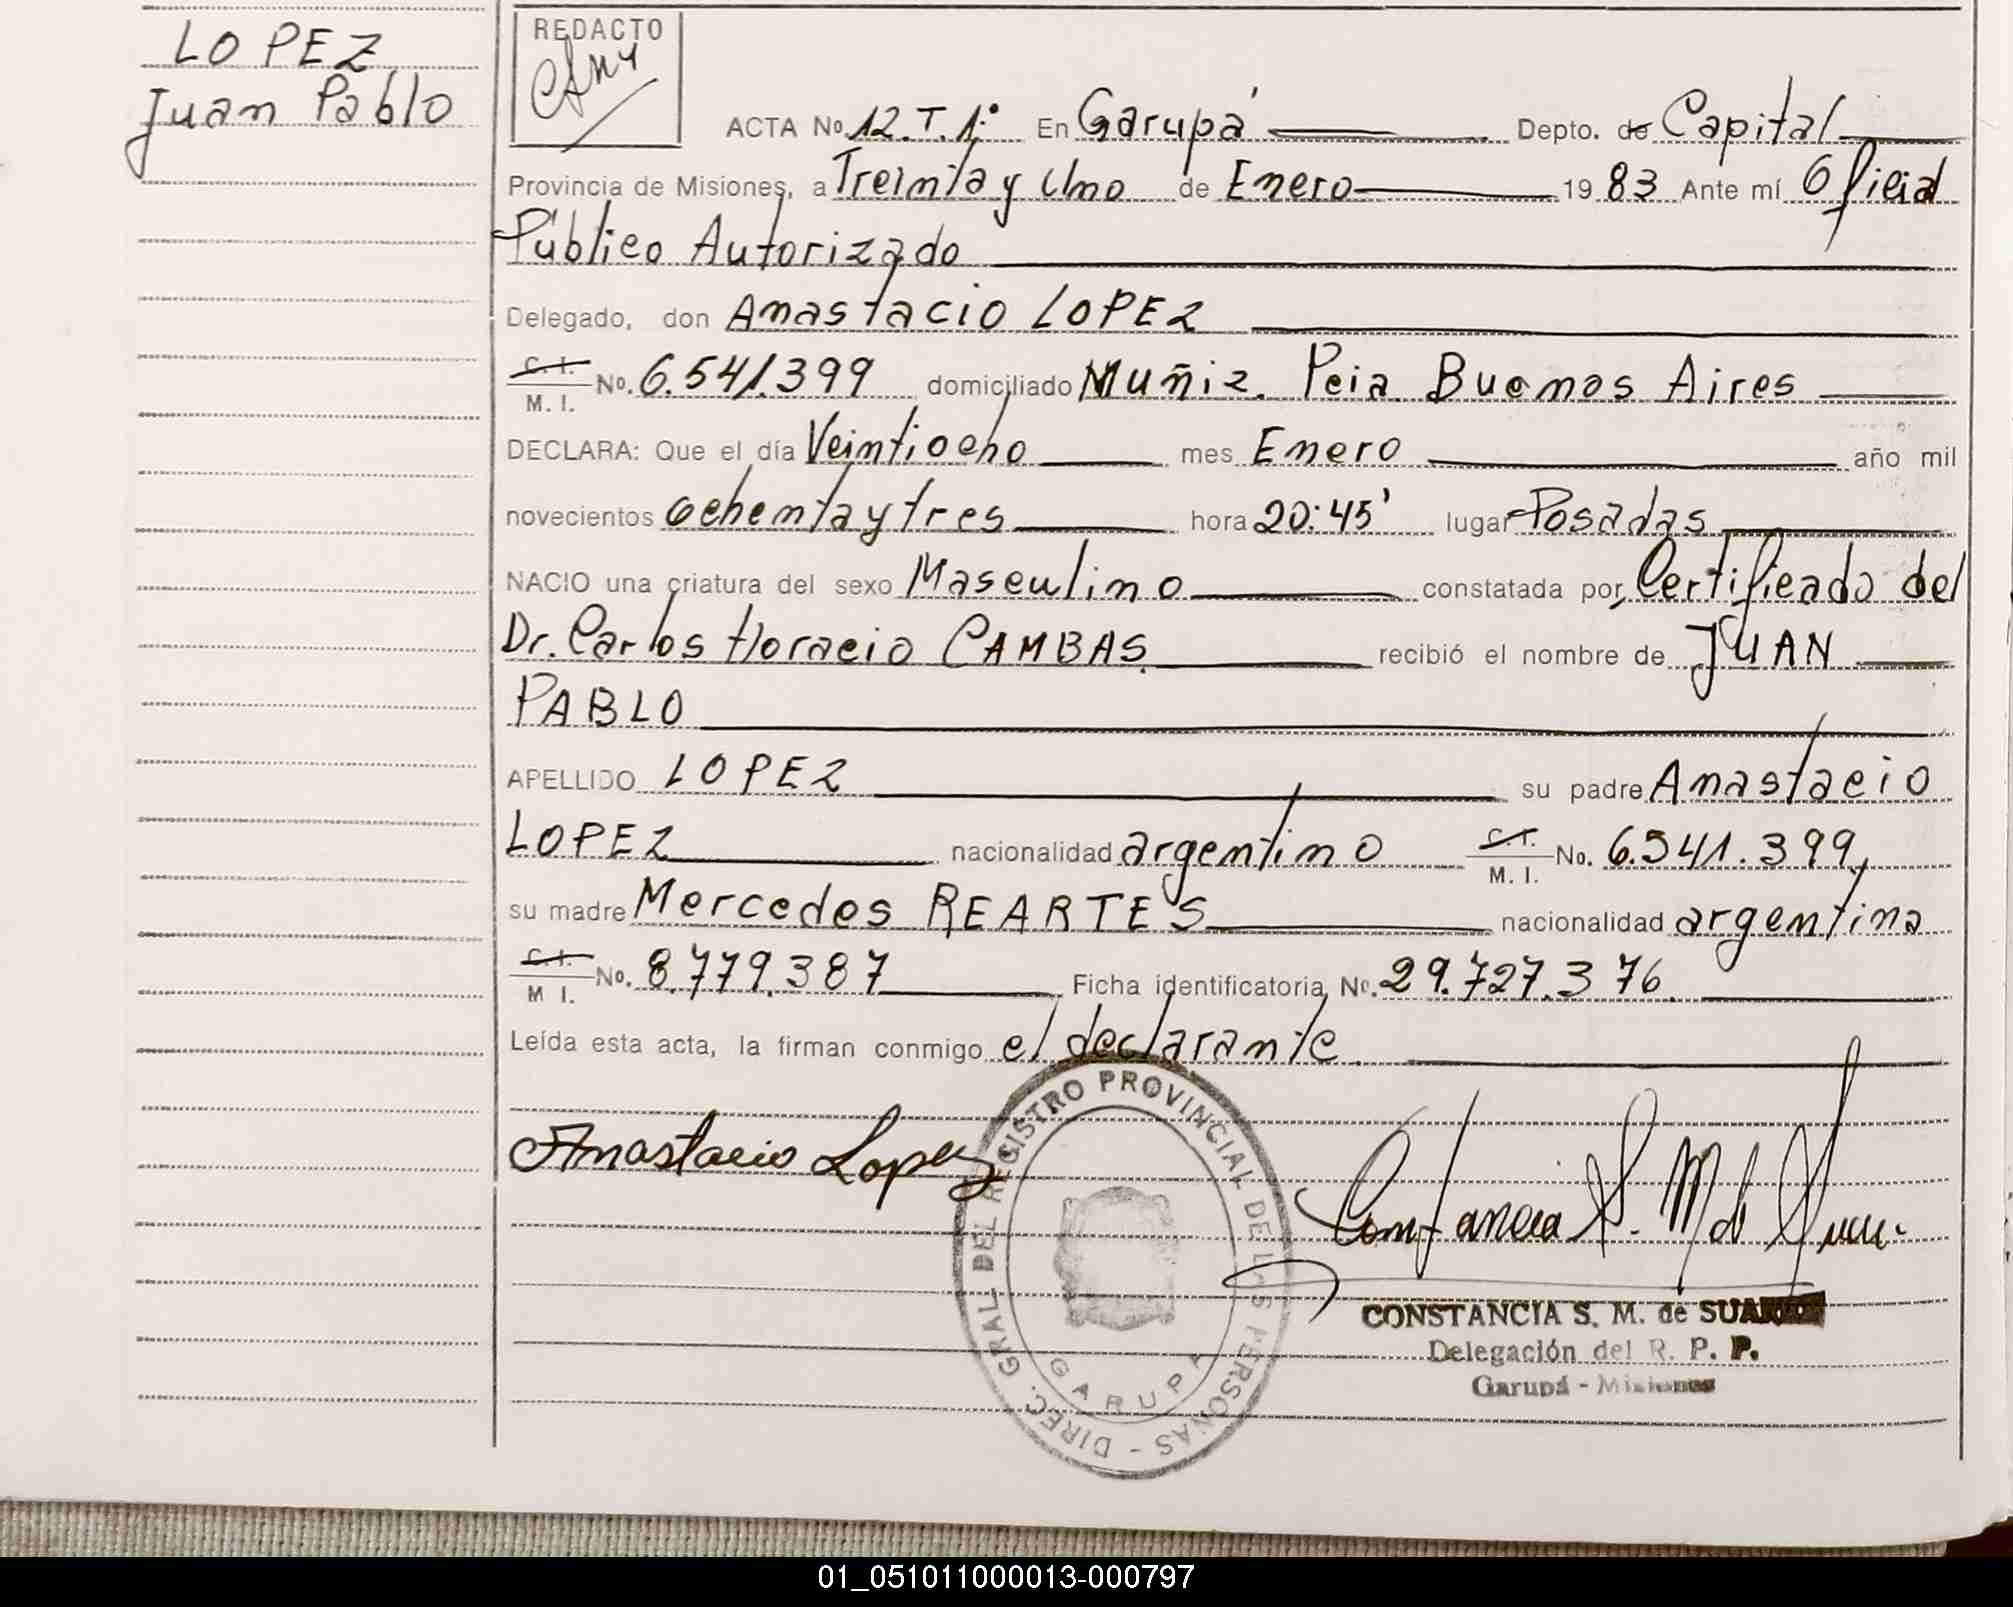 LOPEZ
Juan Pablo
REDACTO
ACTA No. 12.T.1:° En Garupá Depto. de Capital
Provincia de Misiones, a Treinta y Uno de Enero 1983 Ante mí Oficial
Público Autorizado
Delegado, don Anastacio LOPEZ
C. I.
M. I. No. 6.541.399 domiciliado Muñiz. Pcia. Buenos Aires
DECLARA: Que el día Veintiocho mes Enero año mil
novecientos ochenta y tres hora 20:45' lugar Posadas
NACIO una criatura del sexo Masculino constatada por Certificado del
Dr. Carlos Horacio CAMBAS. recibió el nombre de JUAN
PABLO
APELLIDO LOPEZ su padre Anastacio
LOPEZ nacionalidad argentino C. I.
M. I. No. 6.541.399,
su madre Mercedes REARTES nacionalidad argentina
C. I.
M I. No. 8.779.387 Ficha identificatoria No. 29.727.376.
Leída esta acta, la firman conmigo el declarante.
Anastacio Lopez
DIREC. GRAL. DEL REGISTRO PROVINCIAL DE LAS PERSONAS -
GARUPA
Constancia S. M de
CONSTANCIA S. M. de SUAREZ
Delegación del R. P. P.
Garupá - Misiones
01_051011000013-000797